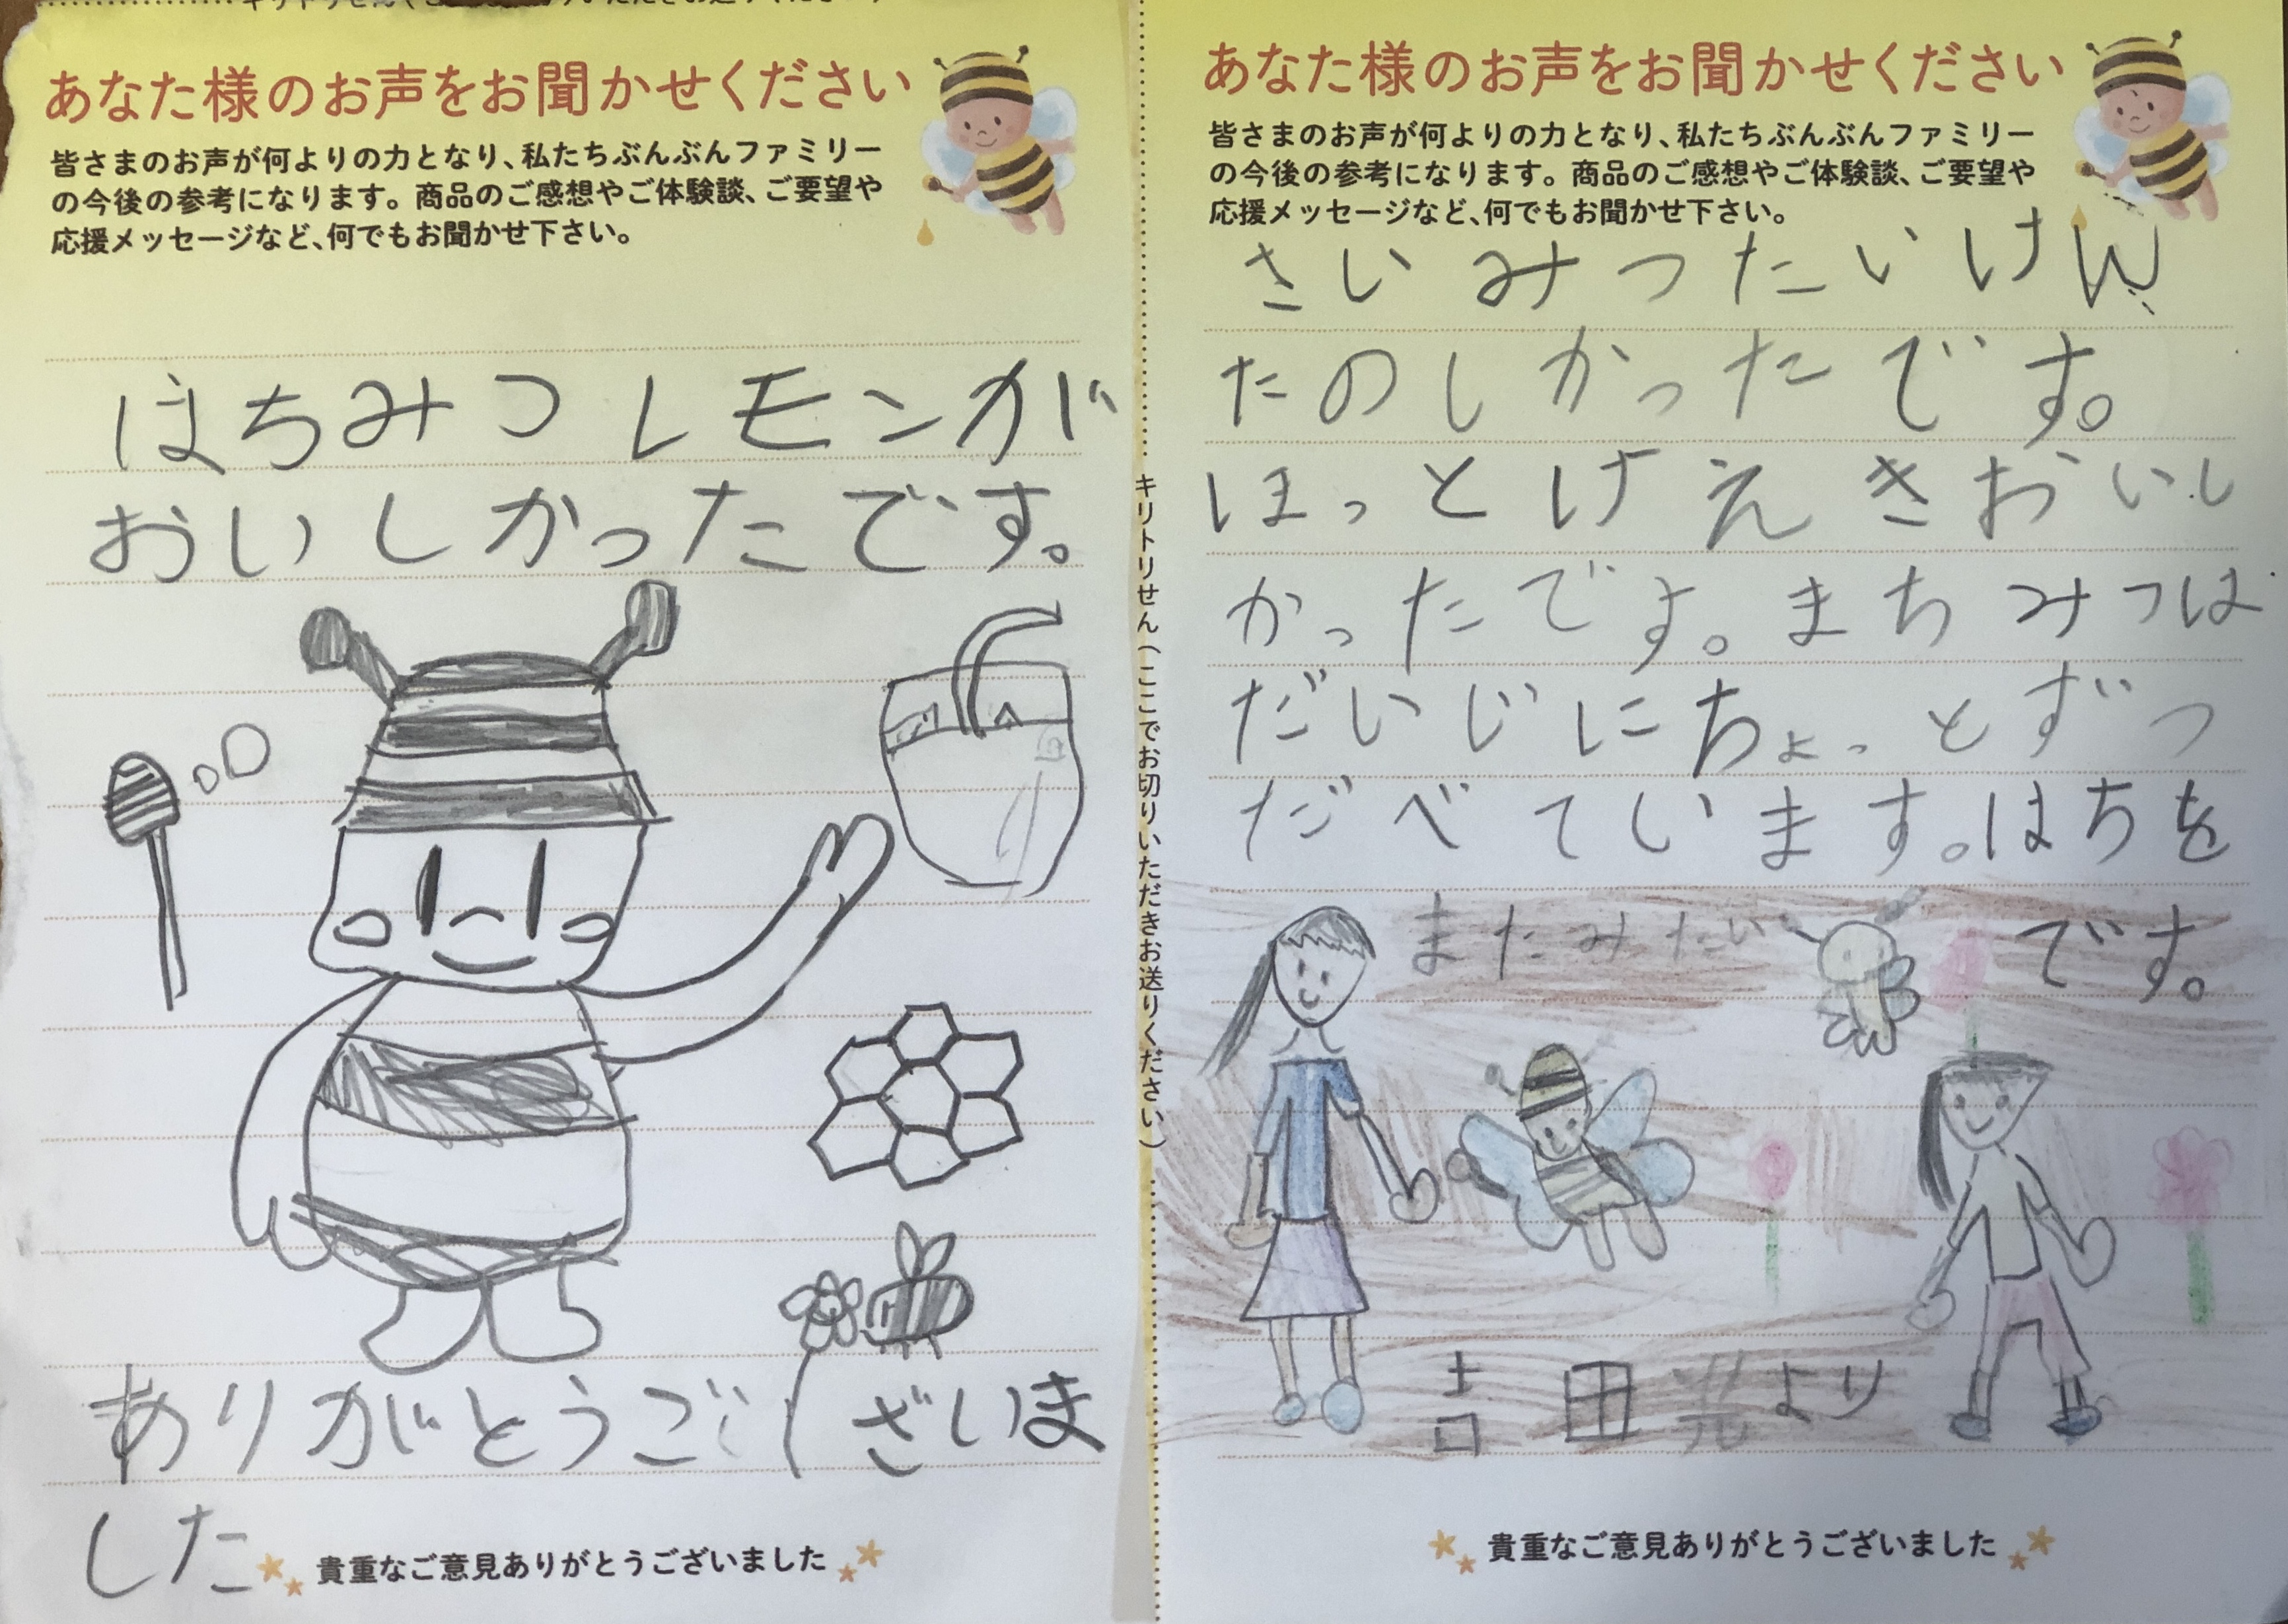 あなた様のお声をお聞かせください
皆さまのお声が何よりの力となり、私たちぶんぶんファミリー
の今後の参考になります。商品のご感想やご体験談、ご要望や
応援メッセージなど、何でもお聞かせ下さい。
はちみつレモンが
おいしかったです。
ありがとうございま
した
貴重なご意見ありがとうございました
キリトリせん（ここでお切りいただきお送りください）
あなた様のお声をお聞かせください
皆さまのお声が何よりの力となり、私たちぶんぶんファミリー
の今後の参考になります。商品のご感想やご体験談、ご要望や
応援メッセージなど、何でもお聞かせ下さい。
さいみつたいけん
たのしかったです。
ほっとけえきおいし
かったです。まちみつは
だいじにちょっとずつ
だべています。はちを
またみたいです。
吉田光より
貴重なご意見ありがとうございました